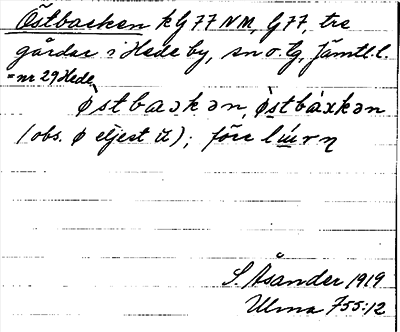 Östbacken k G 77 NM, G 77, tre
gårdar i Hede by, sn o. tg, Jämtl. l.
= nr 29 Hede
østbaɔkən, østbàxkən
(obs. ø eljest ù); före
S. Åsander 1919
Ulma 755:12